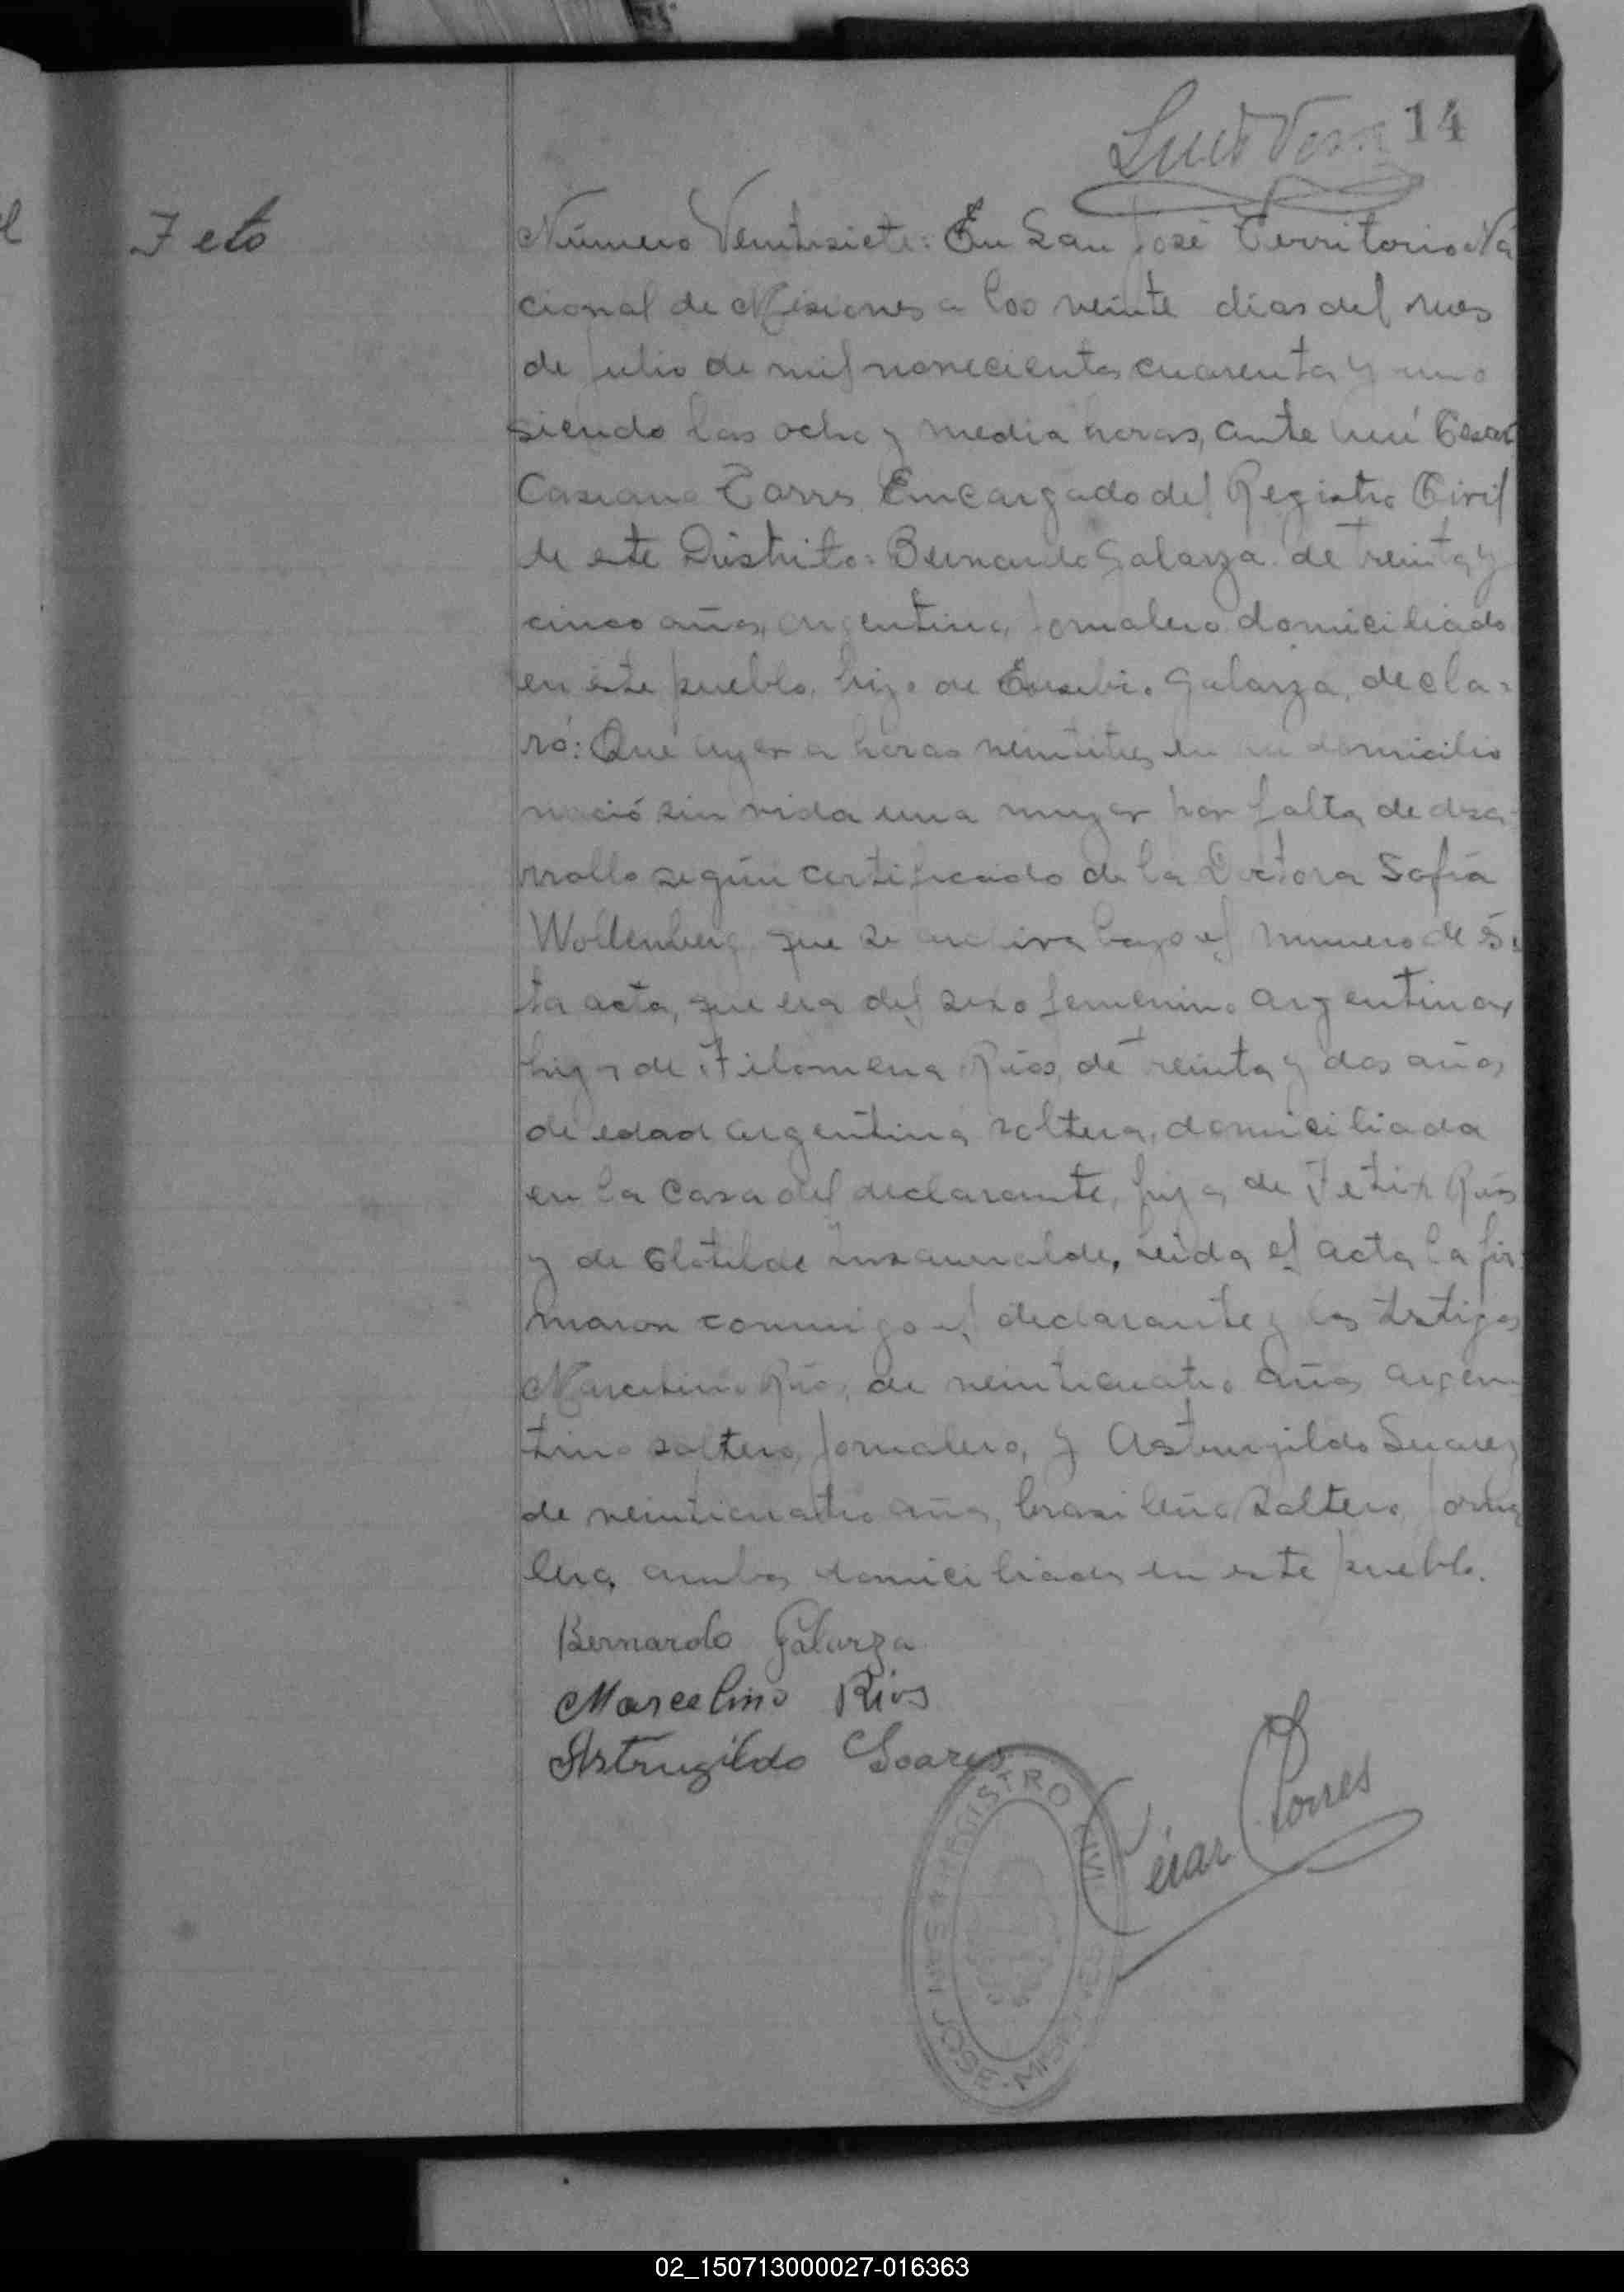 14
Feto
Número Ventisiete: En San José Territorio Na
cional de Misiones a los veinte días del mes
de julio de mil novecientos cuarenta y uno
siendo las ocho y media horas, ante mí Cesar
Casiano Torres Encargado del Registro Civil
de este Distrito: Bernardo Galarza de treinta y
cinco años, argentino, jornalero domiciliado
en éste pueblo, hijo de Eusebio Galarza, decla-
ró: Que ayer a horas veintitres en su domicilio
nació sin vida una mujer por falta de desa-
rrollo según certificado de la Doctora Sofía
Wollenberg que se archiva bajo el numero de és
ta acta, que era del sexo femenino argentina,
hija de Filomena Ríos, de treinta y dos años
de edad argentina soltera, domiciliada
en la casa del declarante, hija de Felix Ríos
y de Clotilde Insaurralde, leida el acta la fir
maron conmigo el declarante y los testigos
Marcelino Ríos, de veinticuatro años argen
tino soltero, jornalero, y Astrugildo Suarez
de veinticuatro años, brasileño soltero jorna
lero, ambos domiciliados en este pueblo.
Bernardo Galarza
Marcelino Rios
Astrugildo Soares
César Torres
REGISTRO CIVIL
SAN JOSÉ - MISIONES
02_150713000027-016363